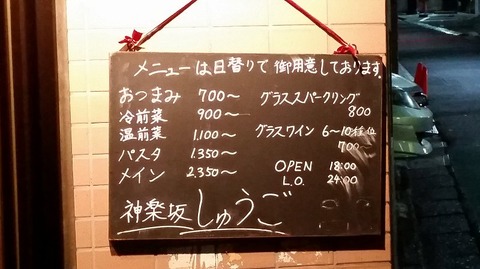 メニューは日替りで御用意しております。
おつまみ 700〜
冷前菜 900〜
温前菜 1.100〜
パスタ 1.350〜
メイン 2,350〜
グラススパークリング
800
グラスワイン 6〜10種位
700〜
OPEN 18:00
L.O. 24:00
神楽坂しゅうご